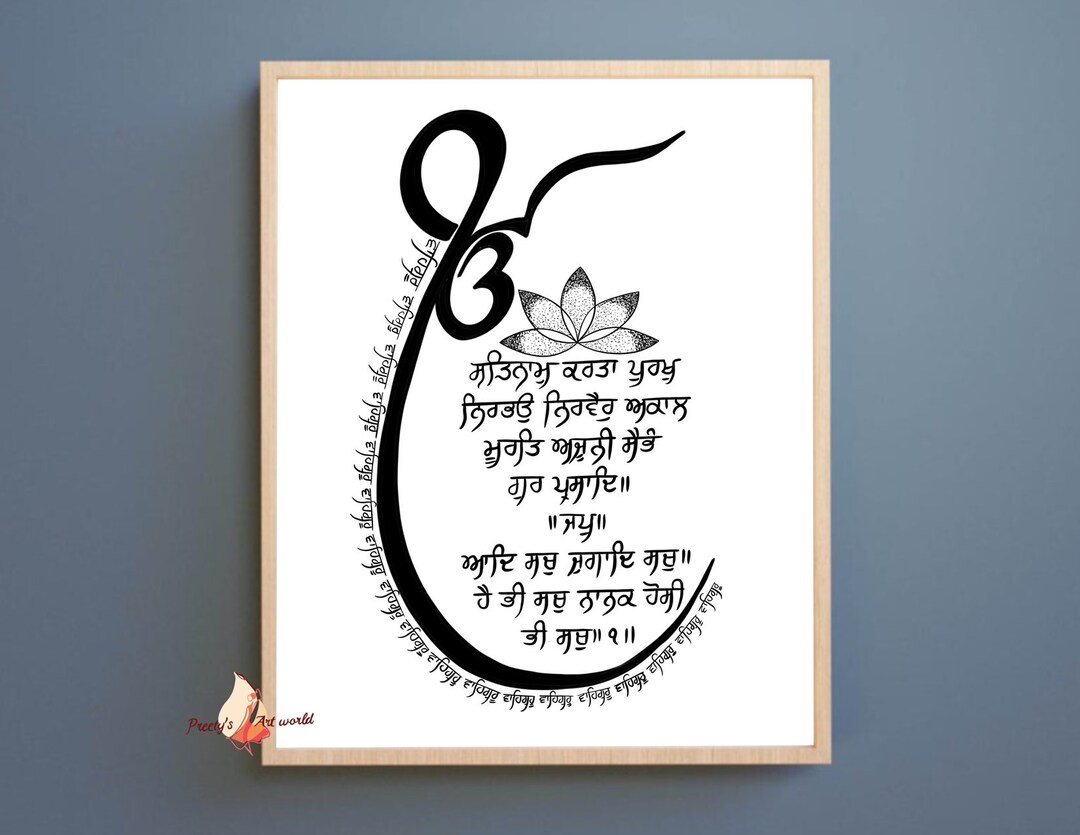 ੴ
ਸਤਿਨਾਮੁ ਕਰਤਾ ਪੁਰਖੁ
ਨਿਰਭਉ ਨਿਰਵੈਰੁ ਅਕਾਲ
ਮੂਰਤਿ ਅਜੂਨੀ ਸੈਭੰ
ਗੁਰ ਪ੍ਰਸਾਦਿ॥
॥ਜਪੁ॥
ਆਦਿ ਸਚੁ ਜੁਗਾਦਿ ਸਚੁ॥
ਹੈ ਭੀ ਸਚੁ ਨਾਨਕ ਹੋਸੀ
ਭੀ ਸਚੁ॥੧॥
ਵਾਹਿਗੁਰੂ ਵਾਹਿਗੁਰੂ ਵਾਹਿਗੁਰੂ ਵਾਹਿਗੁਰੂ ਵਾਹਿਗੁਰੂ ਵਾਹਿਗੁਰੂ ਵਾਹਿਗੁਰੂ ਵਾਹਿਗੁਰੂ ਵਾਹਿਗੁਰੂ ਵਾਹਿਗੁਰੂ ਵਾਹਿਗੁਰੂ ਵਾਹਿਗੁਰੂ ਵਾਹਿਗੁਰੂ ਵਾਹਿਗੁਰੂ ਵਾਹਿਗੁਰੂ ਵਾਹਿਗੁਰੂ ਵਾਹਿਗੁਰੂ ਵਾਹਿਗੁਰੂ
Preety's Art world